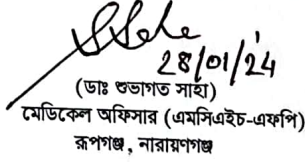 SSaha
28/01/24
(ডাঃ শুভাগত সাহা)
মেডিকেল অফিসার (এমসিএইচ-এফপি)
রূপগঞ্জ, নারায়ণগঞ্জ